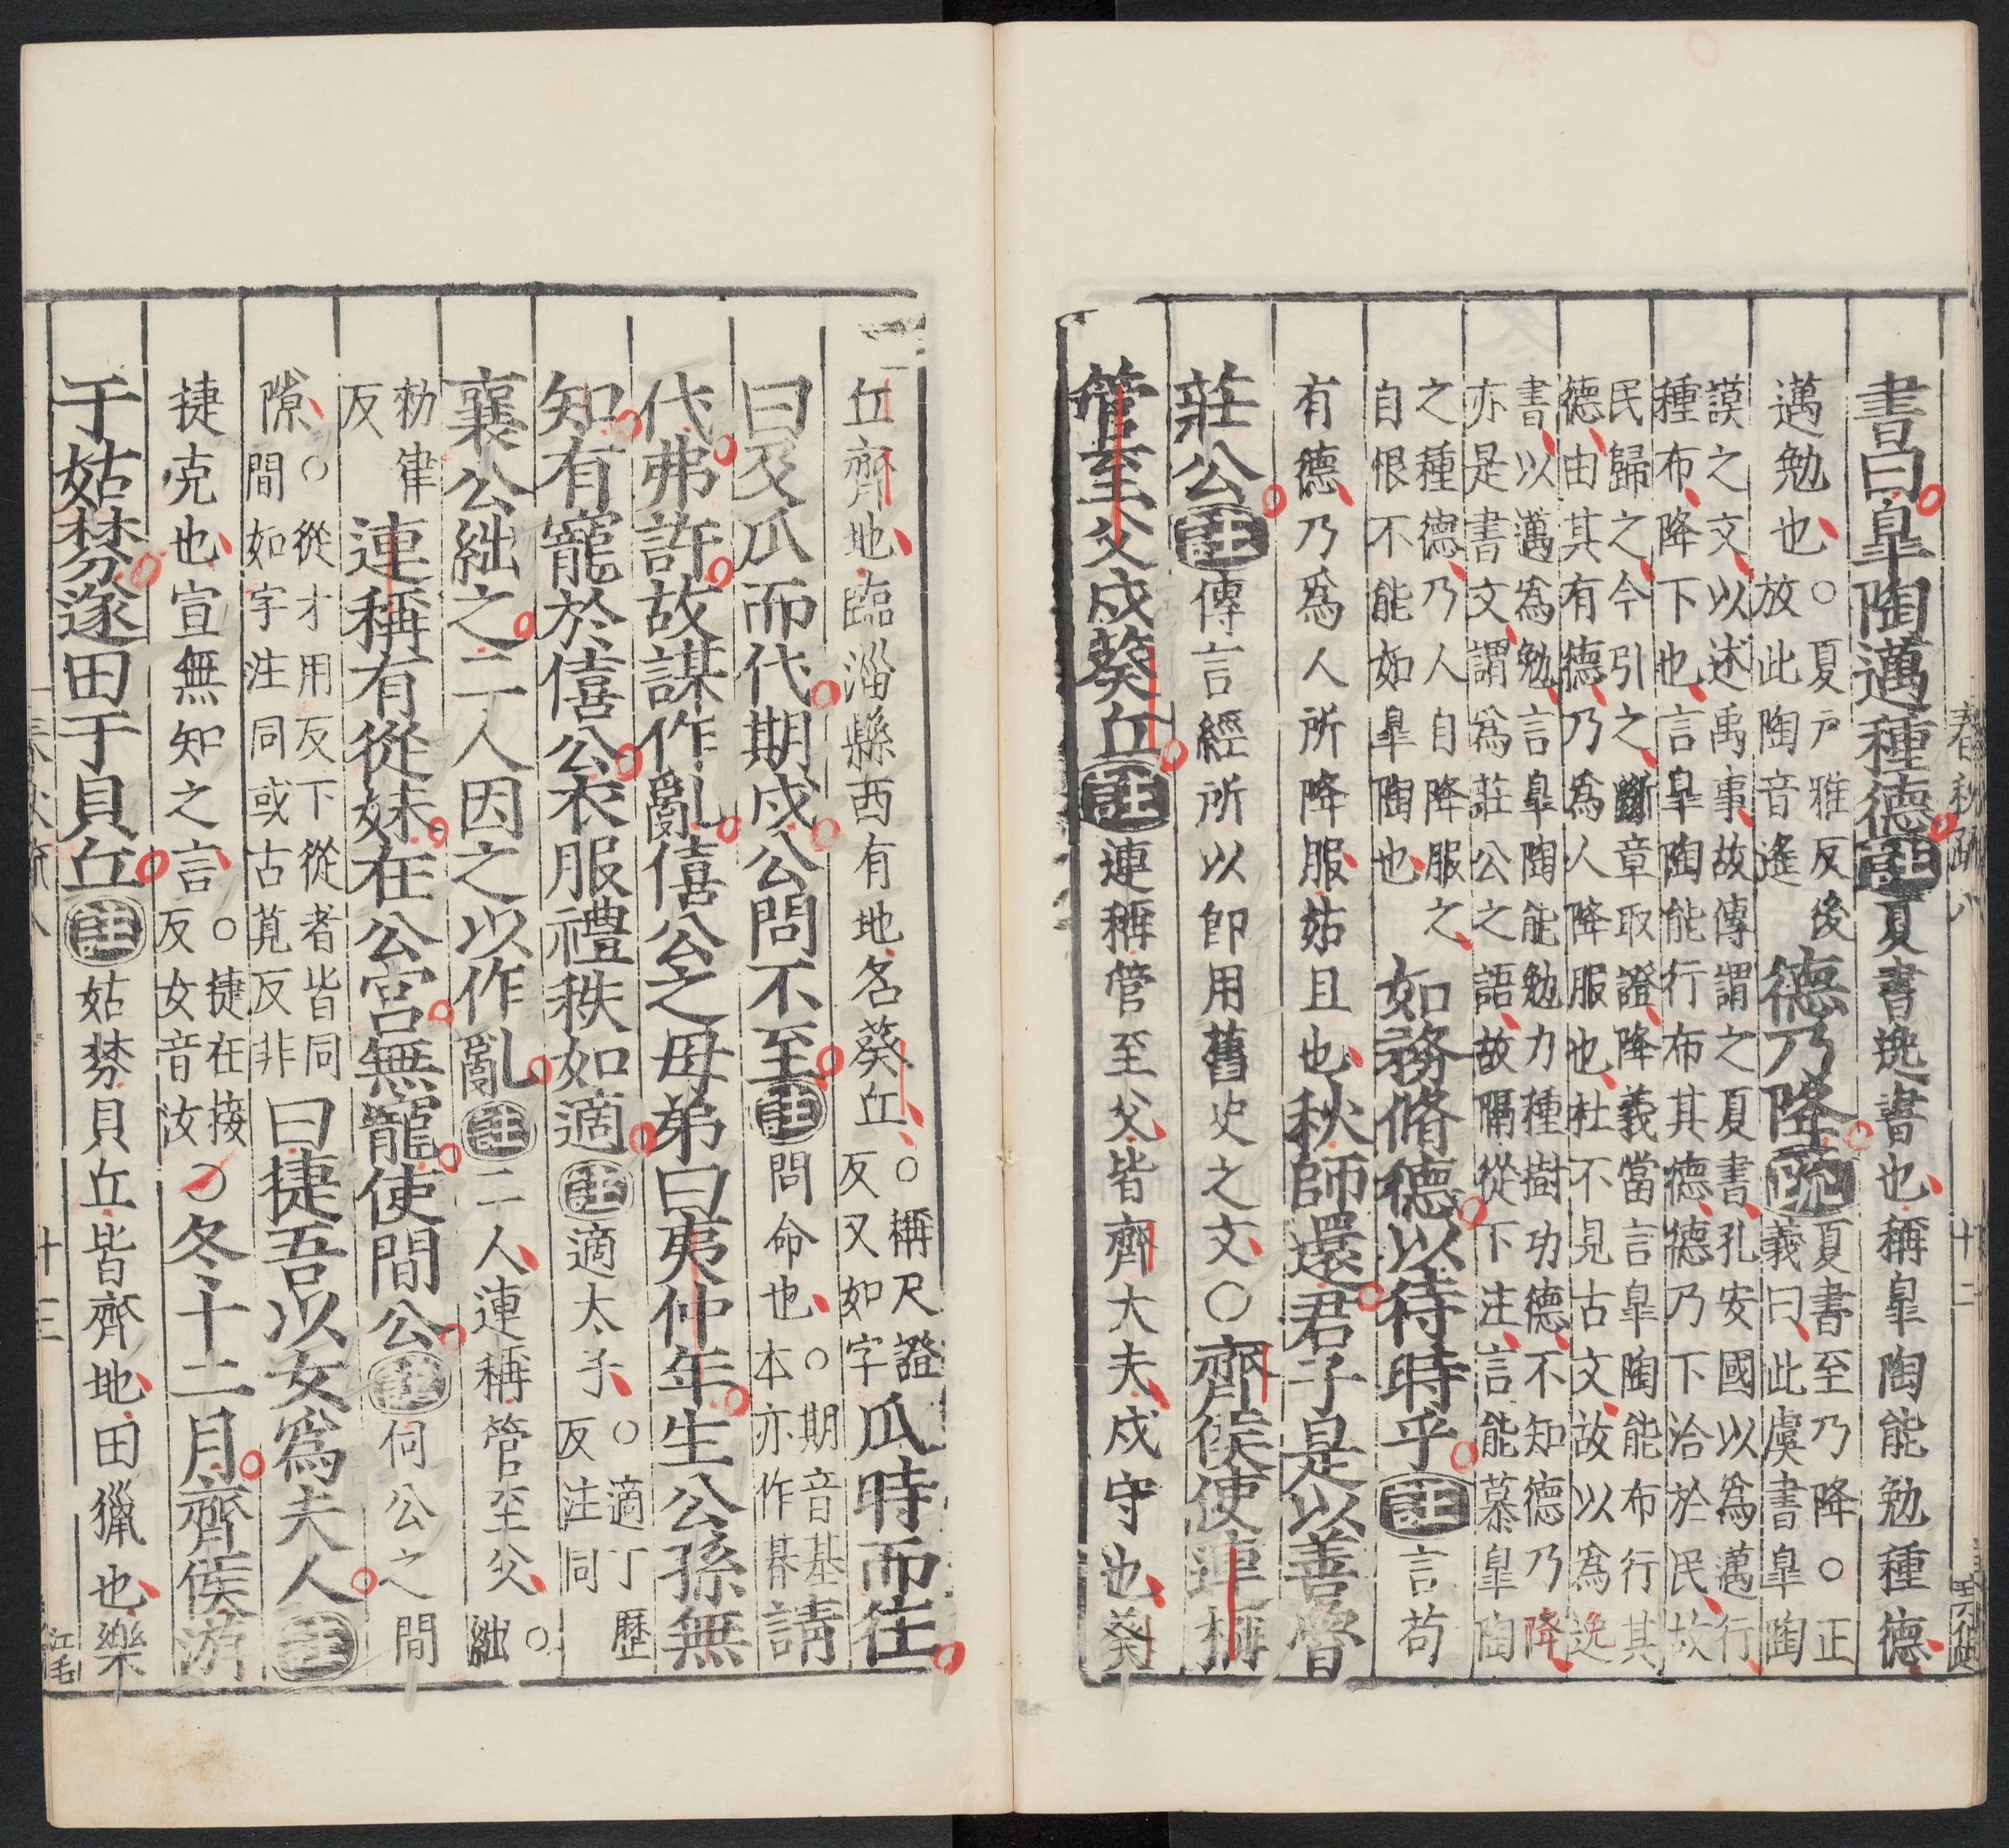 書曰皐陶邁種德註夏書逸書也稱皐陶能勉種德
邁勉也○夏戸雅反後放此陶音遙德乃降疏夏書至乃降○正義曰此虞書皐陶
謨之文以述禹事故傳謂之夏書孔安國以爲邁行
種布降下也言皐陶能行布其德德乃下洽於民故
民歸之今引之斷章取證降義當言皐陶能布行其
德由其有德乃爲人降服也杜不見古文故以爲逸
書以邁爲勉言皐陶能勉力種樹功德不知德乃降
亦是書文謂爲莊公之語故隔從下注言能慕皐陶
之種德乃人自降服之
自恨不能如皐陶也如務脩德以待時乎註言苟
有德乃爲人所降服姑且也秋師還君子是以善魯
莊公註傳言經所以即用舊史之文○齊侯使連稱
管至父戍葵丘註連稱管至父皆齊大夫戍守也葵
春秋疏八
十二
丘齊地臨淄縣西有地名葵丘○稱尺證反又如字瓜時而往
曰及瓜而代期戍公問不至註問命也○期音基本亦作朞請
代弗許故謀作亂僖公之母弟曰夷仲年生公孫無
知有寵於僖公衣服禮秩如適註適太子○適丁歷反注同
襄公絀之二人因之以作亂註二人連稱管至父○絀
勑律反連稱有從妹在公宮無寵使間公註伺公之間
隙○從才用反下從者皆同間如字注同或古莧反非曰捷吾以女爲夫人註
捷克也宣無知之言○捷在接反女音汝○冬十二月齊侯游
于姑棼遂田于貝丘註姑棼貝丘皆齊地田獵也樂
春秋疏八
十三
江毛